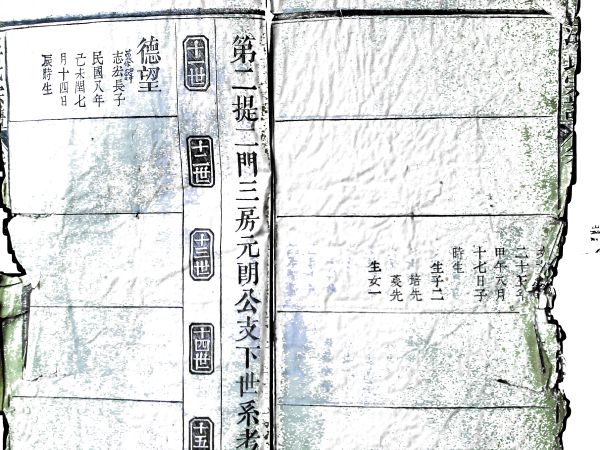 二十五
甲午六月
十七日子
時生
生子二
培先
葵先
生女一
第二提二門三房元朗公支下世系考
十一世
十二世
十三世
十四世
十五
德望
志宏長子
民國八年
己未閏七
月十四日
辰時生